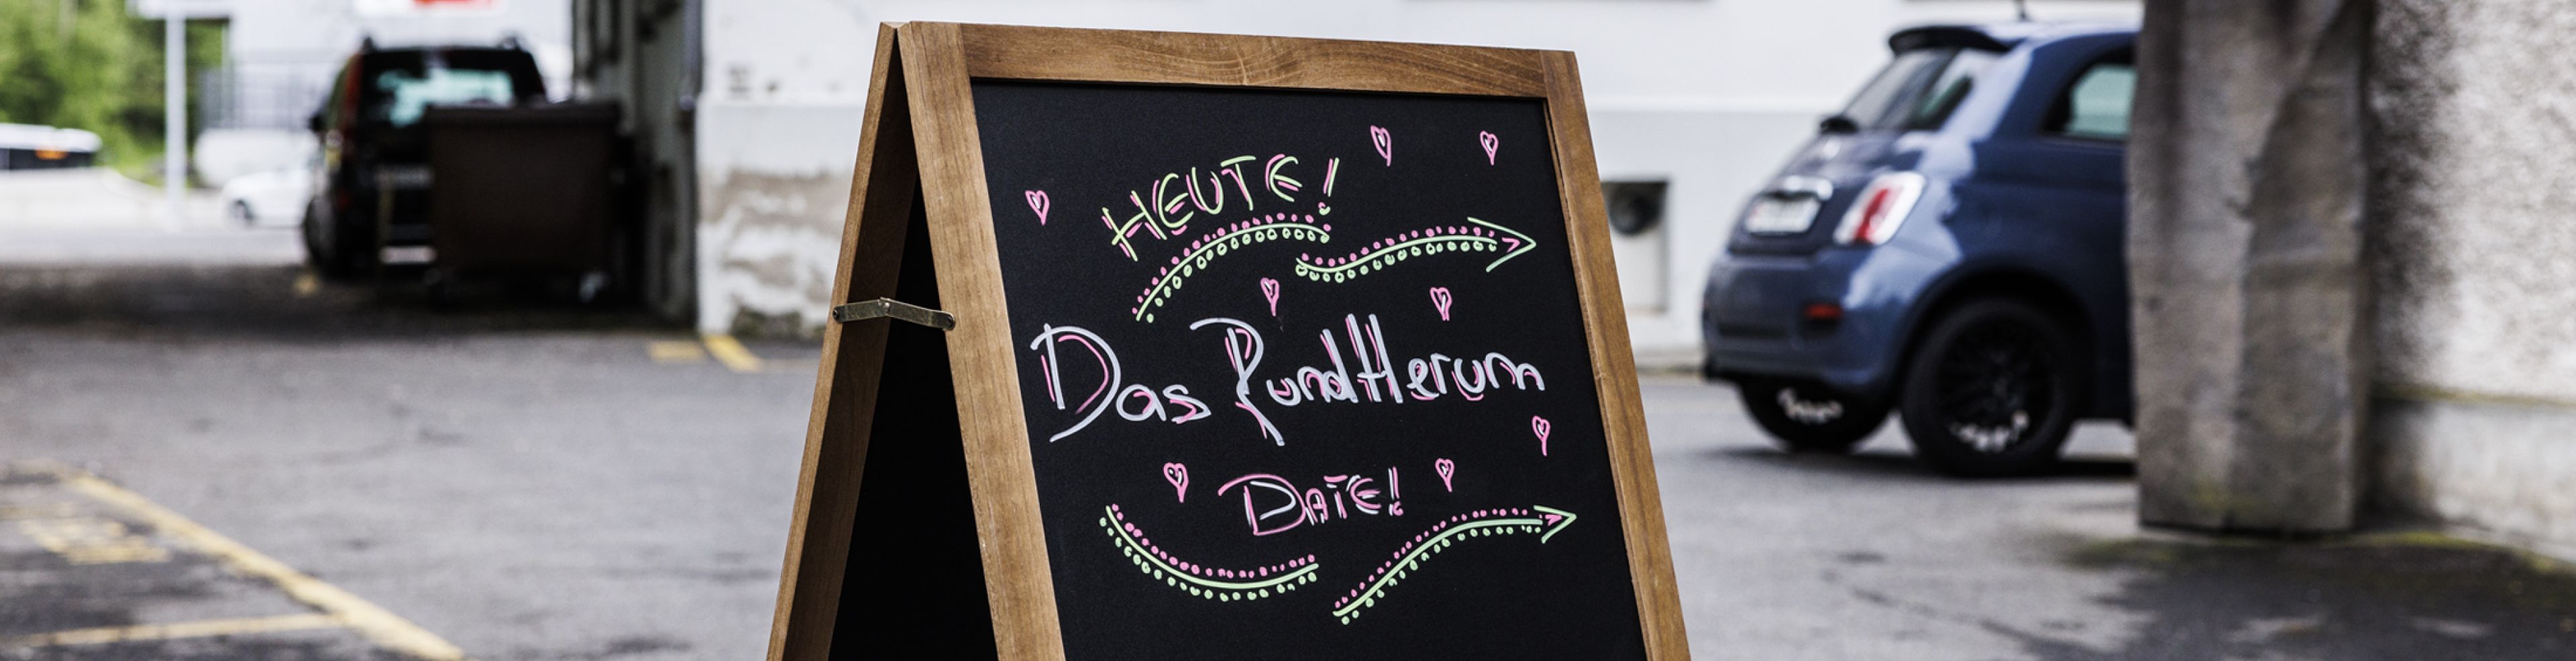 HEUTE!
Das RundHerum
DATE!